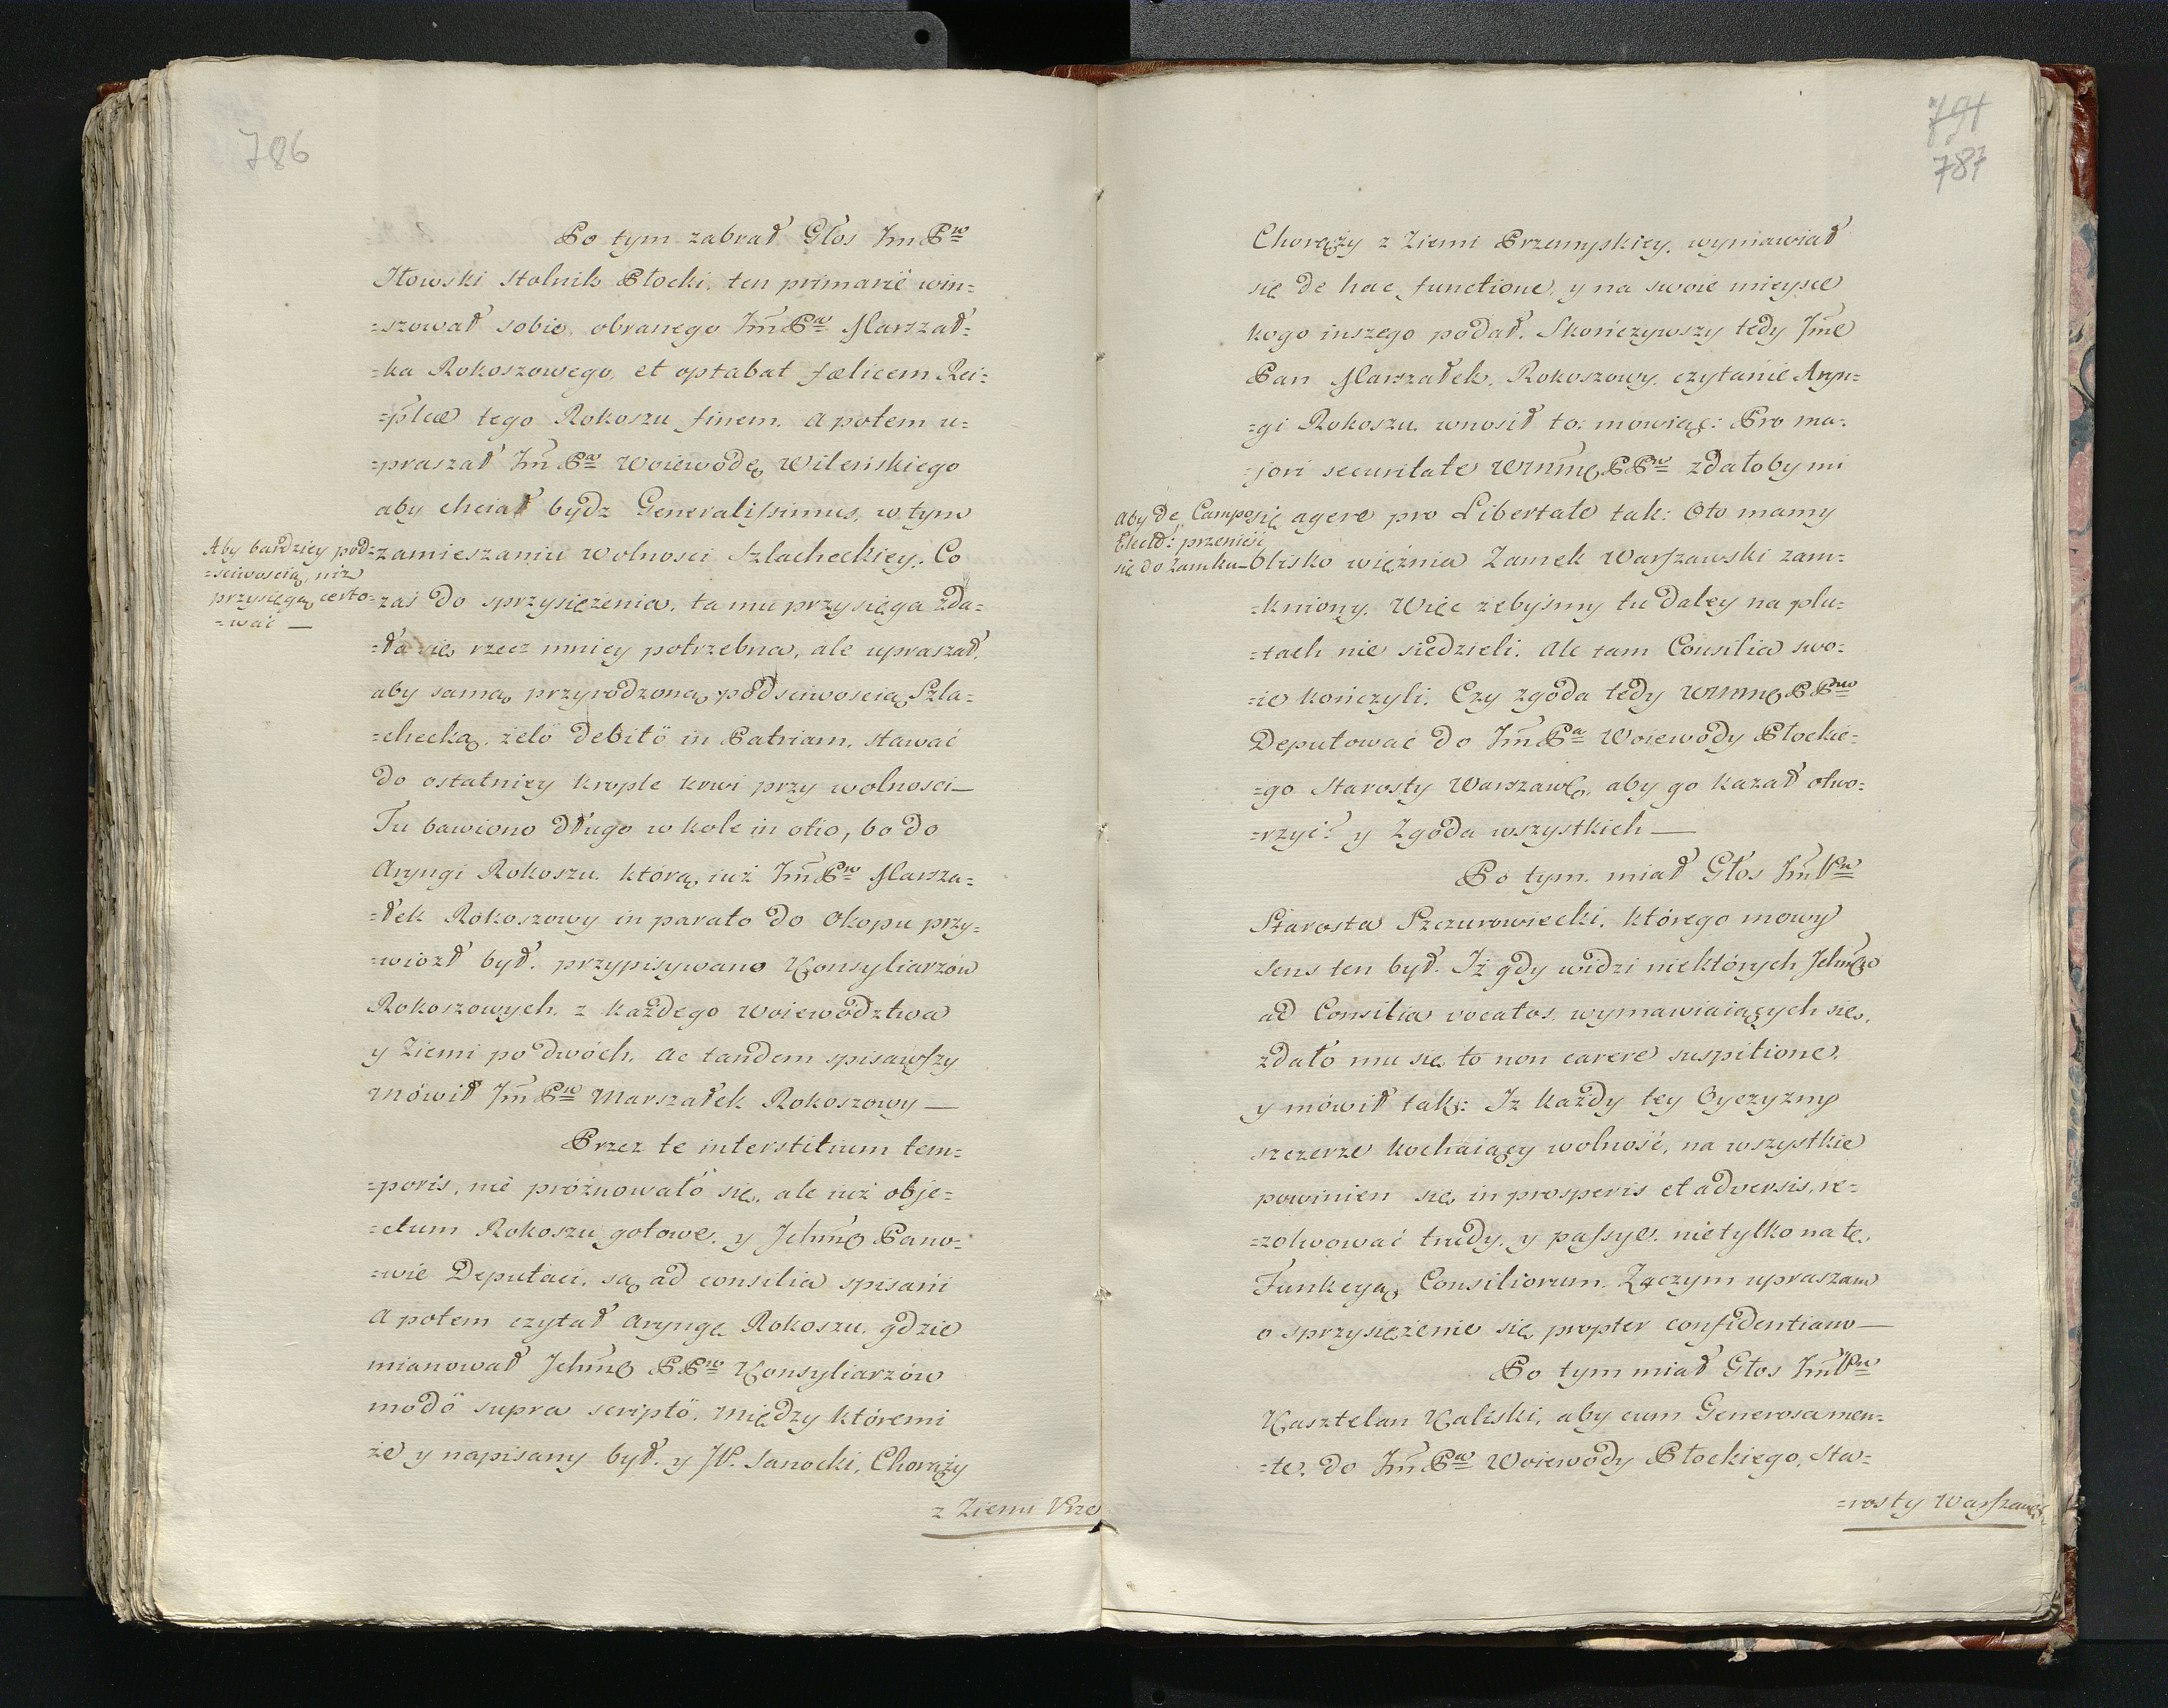 786
Po tym zabrał Głos Jm Pn
Iłowski Stolnik Płocki. ten primarié win=
=szował sobie, obranego Jm̄ Pa Marszał=
=ka Rokoszowego, et optabat fælicem Rei=
=plcæ tego Rokoszu finem. a potem u=
=praszał Jm̄ Pa Woiewodę Wileńskiego
aby chciał bydz Generalissimus, w tym
zamieszaniu Wolnosci Szlacheckiey. Co
zaś do sprzysiężenia, ta mu przysięga zda=
=ła się rzecz mniey potrzebna, ale upraszał.
aby samą przyrodzoną podsciwoscią Szla=
=checką, żelö debitö in Patriam, stawać
do ostatniey krople krwi przy wolnosci—
Tu bawiono długo w kole in otio, bo do
Aryngi Rokoszu. którą iuż Jm̄ Pn Marsza=
=łek Rokoszowy in parato do Okopu przy=
=wiozł był. przypisywano Konsyliarzów
Rokoszowych. z każdego Woiewodztwa
y Ziemi po dwóch. ac tandem spisawszy
mówił Jm̄ Pn Marszałek Rokoszowy —
Przez te interstitium tem=
=poris, nie próżnowało się, ale iuż obje=
=ctum Rokoszu gotowe. y Jchm̄ Pano=
=wie Deputaci, są ad consilia spisani
A potem czytał aryngę Rokoszu. gdzie
mianował Jchm̄ PPw Konsyliarzów
modö supra scriptö. między któremi
że y napisany był. y JP. Sanocki, Chorąży
z Ziemi Prze
Aby bardziey pod=
=sciwoscią, niż
przysięgą certo=
=wać —
791
787
Chorąży z Ziemi Przemyskiey, wymawiał
się de hac functione, y na swoie mieysce
kogo inszego podał. Skończywszy tedy Jm̄
Pan Marszałek. Rokoszowy. czytanie Aryn=
=gi Rokoszu. wnosił to: mowiąc: Pro ma=
=jori securitate WMM PPw zdałoby mi
się agere pro Libertate tak: Oto mamy
blisko więźnia Zamek Warszawski zam=
=kniony. Więc żebyśmy tu daley na plu=
=tach nie siedzieli. Ale tam Consilia swo=
=ie kończyli. Czy zgoda tedy WMM PPw
Deputować do Jm̄ Pa Woiewody Płockie=
=go Starosty Warszaw. aby go kazał otwo=
=rzyć? y Zgoda wszystkich —
Po tym. miał Głos Jm̄ Pn
Starosta Szczurowiecki. którego mowy
sens ten był. Iż gdy widzi niektórych Jchm̄
ad Consilia vocatos. wymawiaiących się,
zdało mu się to non carere suspitione.
y mówił tak: Iz każdy tey Oyczyzny
szczerze kochaiący wolność, na wszystkie
powinien się in prosperis et adversis, re=
=zolwować trudy, y passye. nie tylko na tę
Funkcyą Consiliorum. Zaczym upraszam
o sprzysiężenie się propter confidentiam —
Po tym miał Głos Jm̄ Pn
Kasztelan Kaliski, aby cum Generosa men=
=te. do Jm̄ Pa Woiewody Płockiego, Sta=
=rosty Warszaws.
Aby de Campo
Elect: przenieść
się do Zamku—